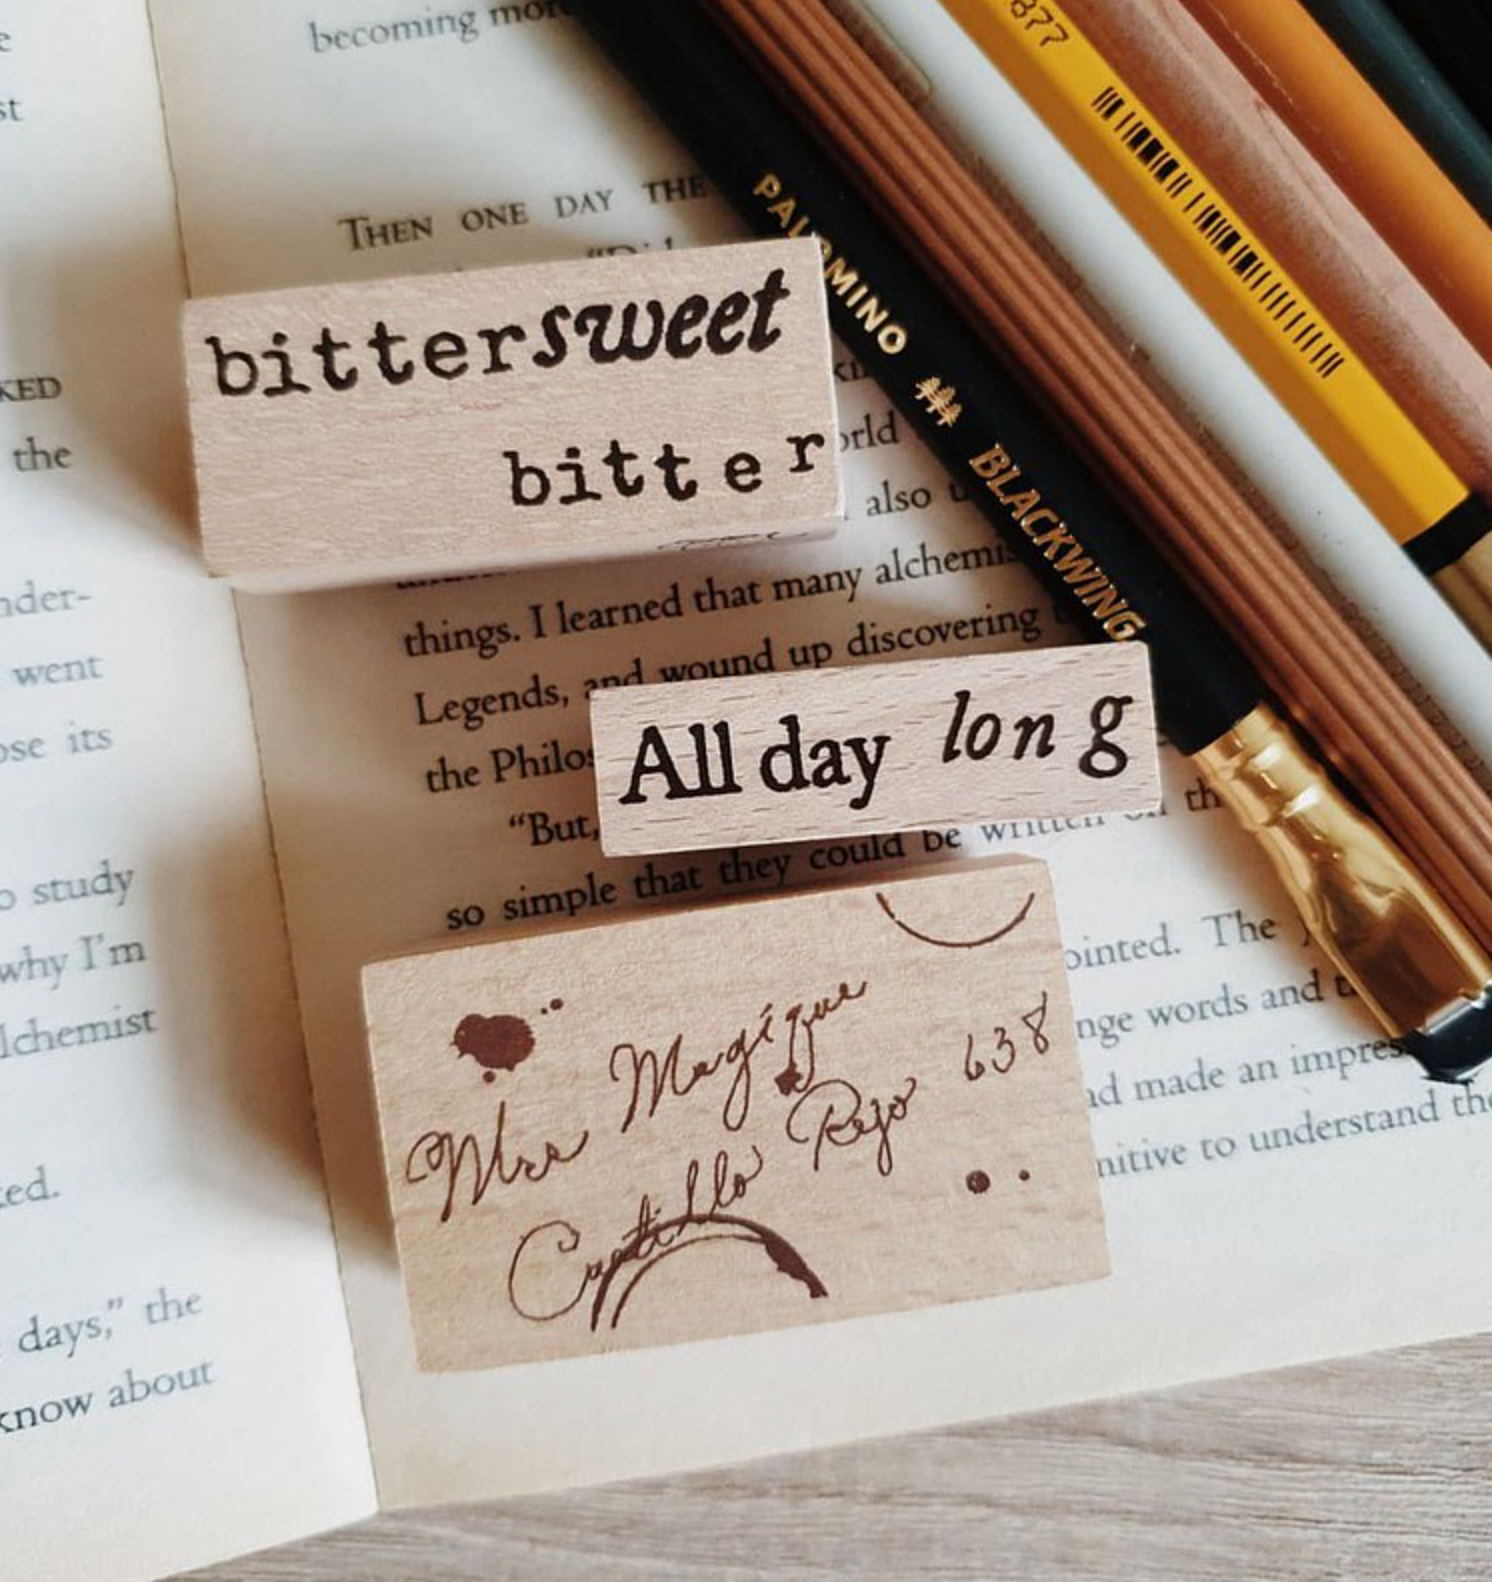 becoming
st
THEN ONE DAY THE
877
PALOMINO BLACKWING
bittersweet
bitter
KED
the
also
things. I learned that many
Legends, and wound up discovering
the
went
its
All day long
"But,
so simple that they could be written
study
why I'm
lchemist
Mrs Magique
Castillo Rejo 638
ointed. The
words and
made an
nitive to understand the
days," the
know about